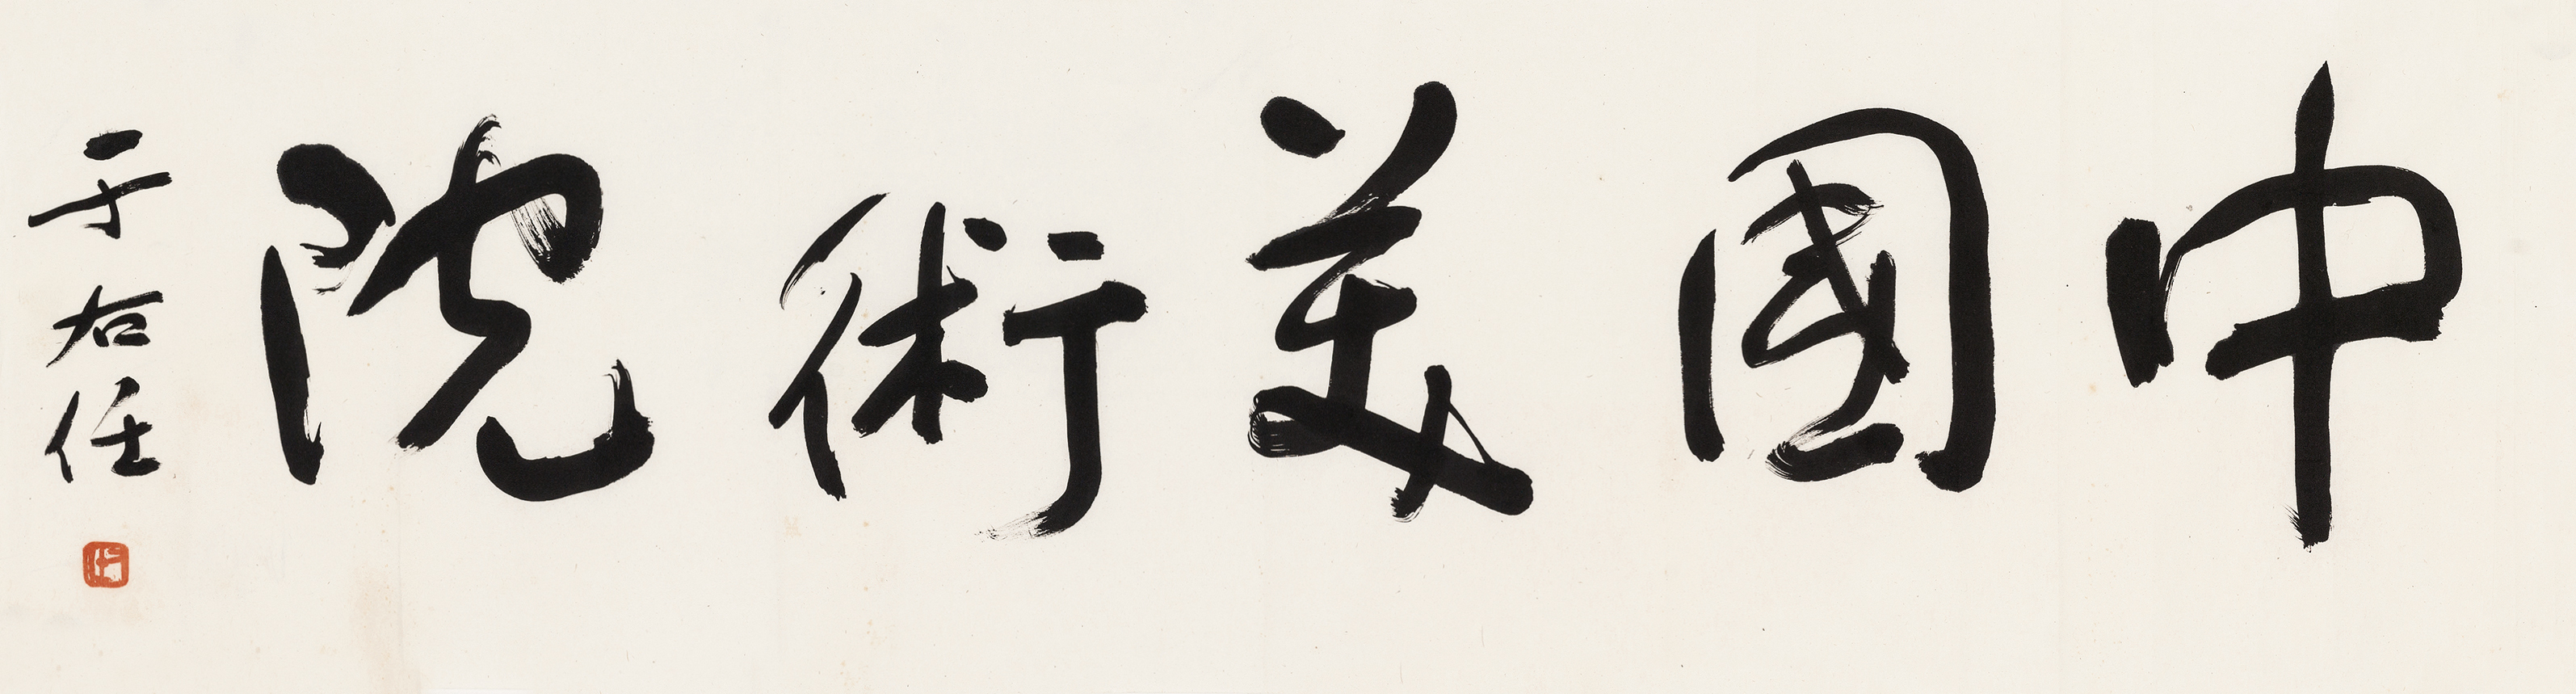 中國美術院
于右任